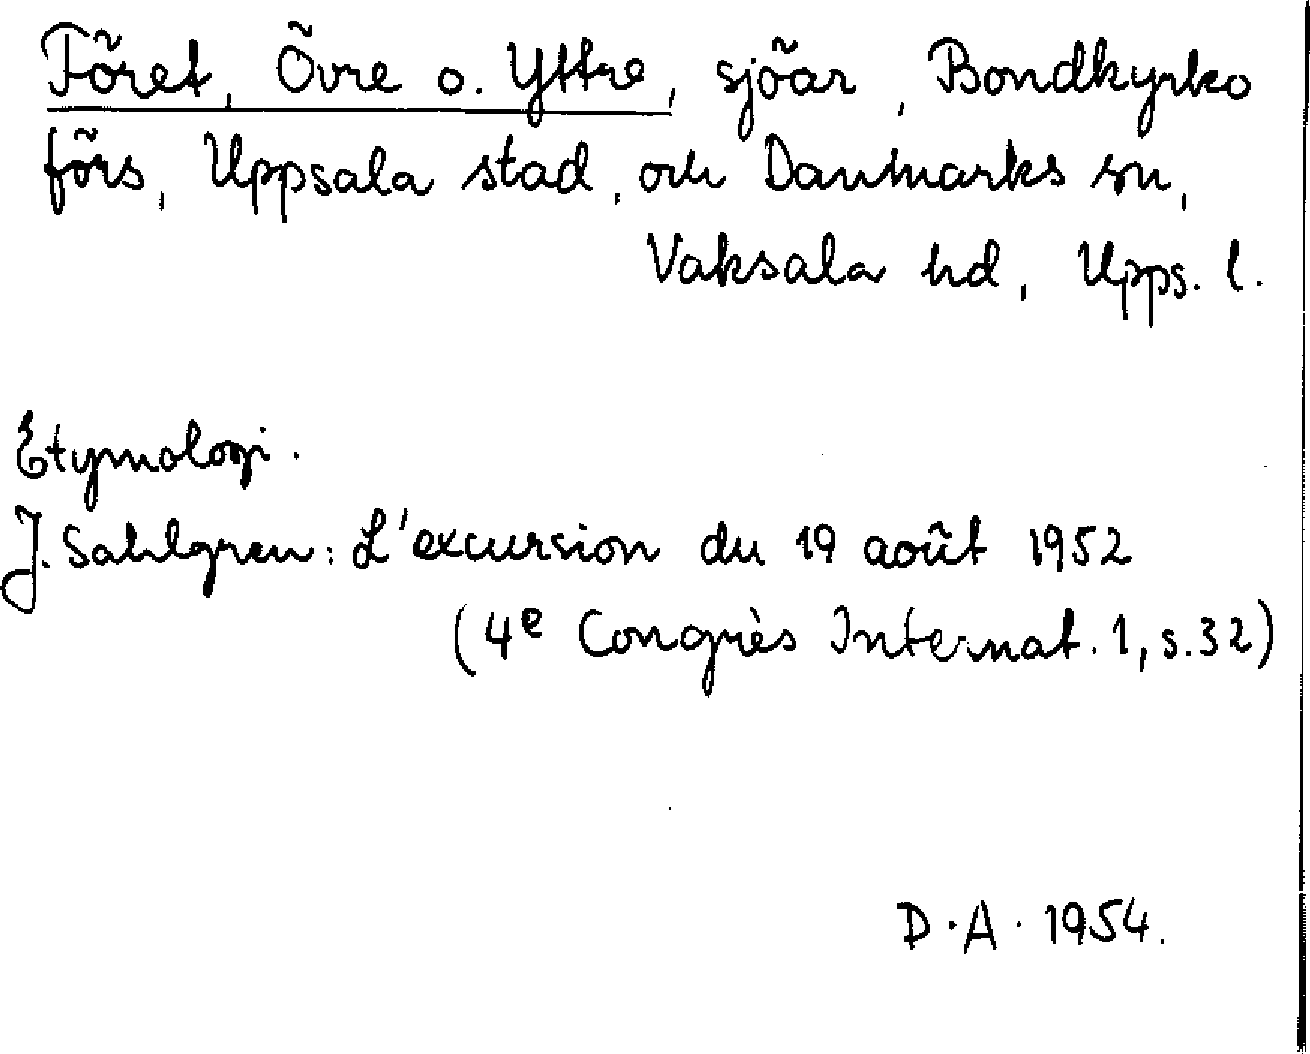 Föret, Övre o. Yttre, sjöar, Bondkyrko
förs, Uppsala stad, och Danmarks sn,
Vaksala hd, Upps. l.
Etymologi.
J. Sahlgren: L'excursion du 19 août 1952
(4e Congrès Internat. 1, s. 32)
D. A. 1954.